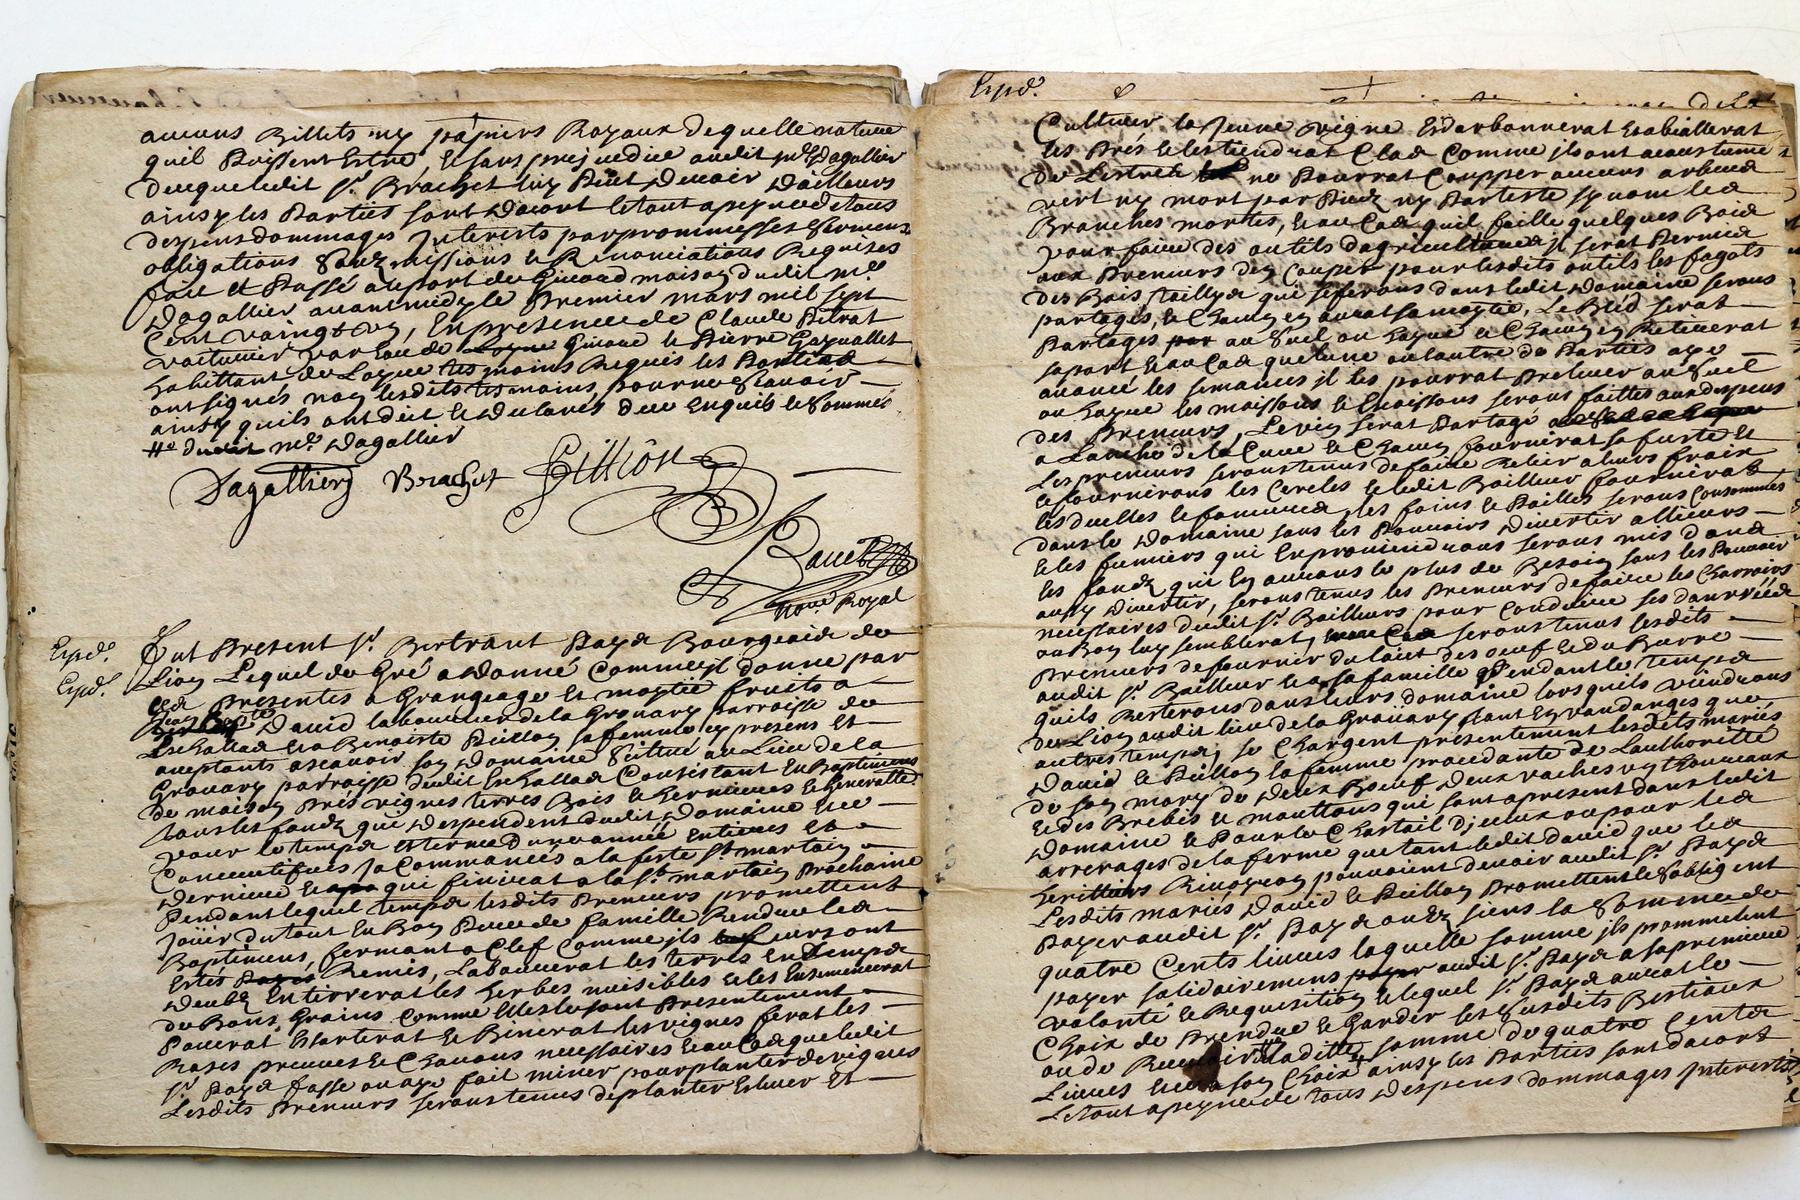 aucuns Billiets ny papiers Royaux de quelle nature
quil Puissent Estre, & sans prejuedice audit mr Dagallier
de ce que ledit Sr. Brachet luy Peut devoir dailleurs
ainsy les Parties sont dacort le tout a peyne de tous
despens dommages Interests par prommesses serments
obligations soubzmissions & Renonciations Requises
fait et Passé au port de maison dudit me
Dagallier avant midy le Premier mars mil sept
Cent vaingt & un, En presence de Claude Pitrat
voiturier par Eau de & Pierre
habittant de Loyse tesmoins Requis les Parties
ont signés non lesdits tesmoins pour ne scavoir
ainsy quils ont dit & declarés de ce Enquis & sommés
dudit me. Dagallier
Dagallier Brachet Gillion
Roued
Nore Royal
Expd.
Expd.
Fut Present Sr. Bertrant Pays Bourgeois de
Lion Lequel de Gré a donné Comme il donne par
ces Presentes a Grangeage et moytié fruits a
David laboureur de la Gronary parroisse de
& a Benoiste Pullion sa femme cy present et
acceptants ascavoir son Domaine scitué au Lieu de la
Gronary parroisse dudit Consistant En Baptimens
de maison prés vignes terres Bois & hermeures & Generallet
tous les fondz qui despendent dudit Domaine & ce
pour le temps et terme dune année entieres et
Consecutifves Ja Commancés a la feste St. martin
Derniere & qui finirat a la St. martin Prochaine
Pendant lequel temps lesdits Preneurs promettent
Joüir du tout En Bon Pere de famille Rendre les
Baptimens, fermant a Clef Comme ils leurs ont
Estés Remis, Labourerat les terres En Temps
deubz En tirrerat les herbes nuisibles & les Ensemencerat
de Bons Grains Comme Elles le sont Presentement
& Binerat les vignes ferat les
Rases preuves & Chavons necessaires & au Cas que ledit
Sr. Pays fasse ou aye fait miner pour planter de vignes
Lesdits Preneurs serons tenus de planter Eslever Et
Expd.
Cultiver la Jeune vigne
les Prés & les tiendrat Clos Comme ils ont acoustumé
de Lestre & ne Pourrat Coupper aucuns arbres
vert ny mort par Pied ny Par teste sy nom les
Branches mortes, & au Cas quil faille quelques Bois
pour faire des outils dagricultures il serat Permis
aux Preneurs den Couper pour lesdits outils les fagots
des Bois taillys qui se ferons dans ledit Domaine serons
partagés, & Chacun en aurat sa moytié, Le Bled serat
Partagé au Suel ou & Chacun en Retirerat
sa part & au Cas que lune ou lautre des Parties aye
avancé les semances il les pourrat Prelever au Suel
ou les moissons & serons faittes aux despens
des Preneurs, Le vin serat Partagé
a Lanche de la Cuve & Chacun fournirat sa fuste Et
Les preneurs serons tenus de faire Relier a leurs frais
& fournirons les Cercles & ledit Bailleur fournirat
les duelles & les foins & Pailles serons Consommés
dans le Domaine sans les Pouvoirs divertir allieurs
& les fumiers qui En proviendrons serons mis dans
les fondz qui En aurons le plus de Besoin sans les Pouvoir
aussy divertir, serons tenus les Preneurs de faire les Charrois
necessaires dudit Sr. Bailleurs pour Conduire ses danrrées
ou Bon luy semblerat, serons tenus lesdits
Preneurs de fournir du lait des oeuf & du Burre
audit Sr. Bailleur & a sa famille Pendant le temps
quils Resterons dans leurs domaine lorsquils viendrons
de Lion audit lieu de la Gronary soit En vandanges que
autres temps, se Chargent presentement lesdits mariés
David & Pullion la femme procedante de Lauthoritté
de son mary de deux Boeuf, deux vaches un Thoureaux
& des Brebis & mouttons qui sont apresent dans ledit
Domaine & Pour le Chastail Diceux ou pour les
arrerages de la ferme que tant ledit David que les
heritiers pouvoient devoir audit Sr. Pays
Lesdits mariés David & Pullion Promettent & sobligent
Payer audit Sr. Pays ou ez siens la Somme de
quatre Cents livres laquelle somme ils prommettent
payer solidairement audit Sr. Pays a sa premiere
volonté & Requisition & lequel Sr. Pays aurat le
Choix de Prendre & Garder les susdits Bestiaux
ou de Recevoir laditte somme de quatre Cents
Livres & a son Choix, ainsy les Parties sont dacort
Le tout a peyne de tous despens dommages Interests